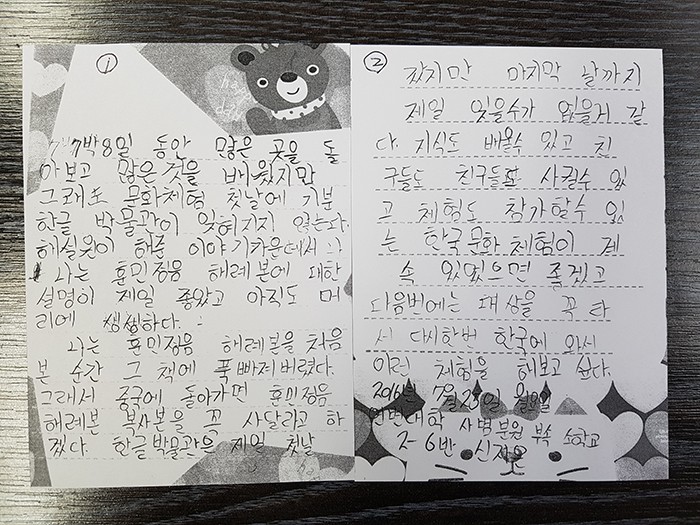 ①
7박8일 동안 많은 곳을 돌
아보고 많은것을 배웠지만
그래도 문화체험 첫날에 기분
한글 박물관이 잊혀지지 않는다.
해설원이 해준 이야기가운데서
나는 훈민정음 해례본에 대한
설명이 제일 좋았고 아직도 머
리에 생생하다.
나는 훈민정음 해례본을 처음
본 순간 그 책에 푹 빠져버렸다.
그래서 중국에 돌아가면 훈민정음
해례본 복사본을 꼭 사달라고 하
겠다. 한글박물관은 제일 첫날
②
갔지만 마지막 날까지
제일 잊을수가 없을거 같
다. 지식도 배울수 있고 친
구들도 친구들로 사귈수 있
고 체험도 참가할수 있
는 한국문화체험이 계
속 있었으면 좋겠고
다음번에는 대상을 꼭 타
서 다시한번 한국에 와서
이런 체험을 해보고 싶다.
7월 25일 월요일
연변대학 사범분원 부속 소학교
2-6반